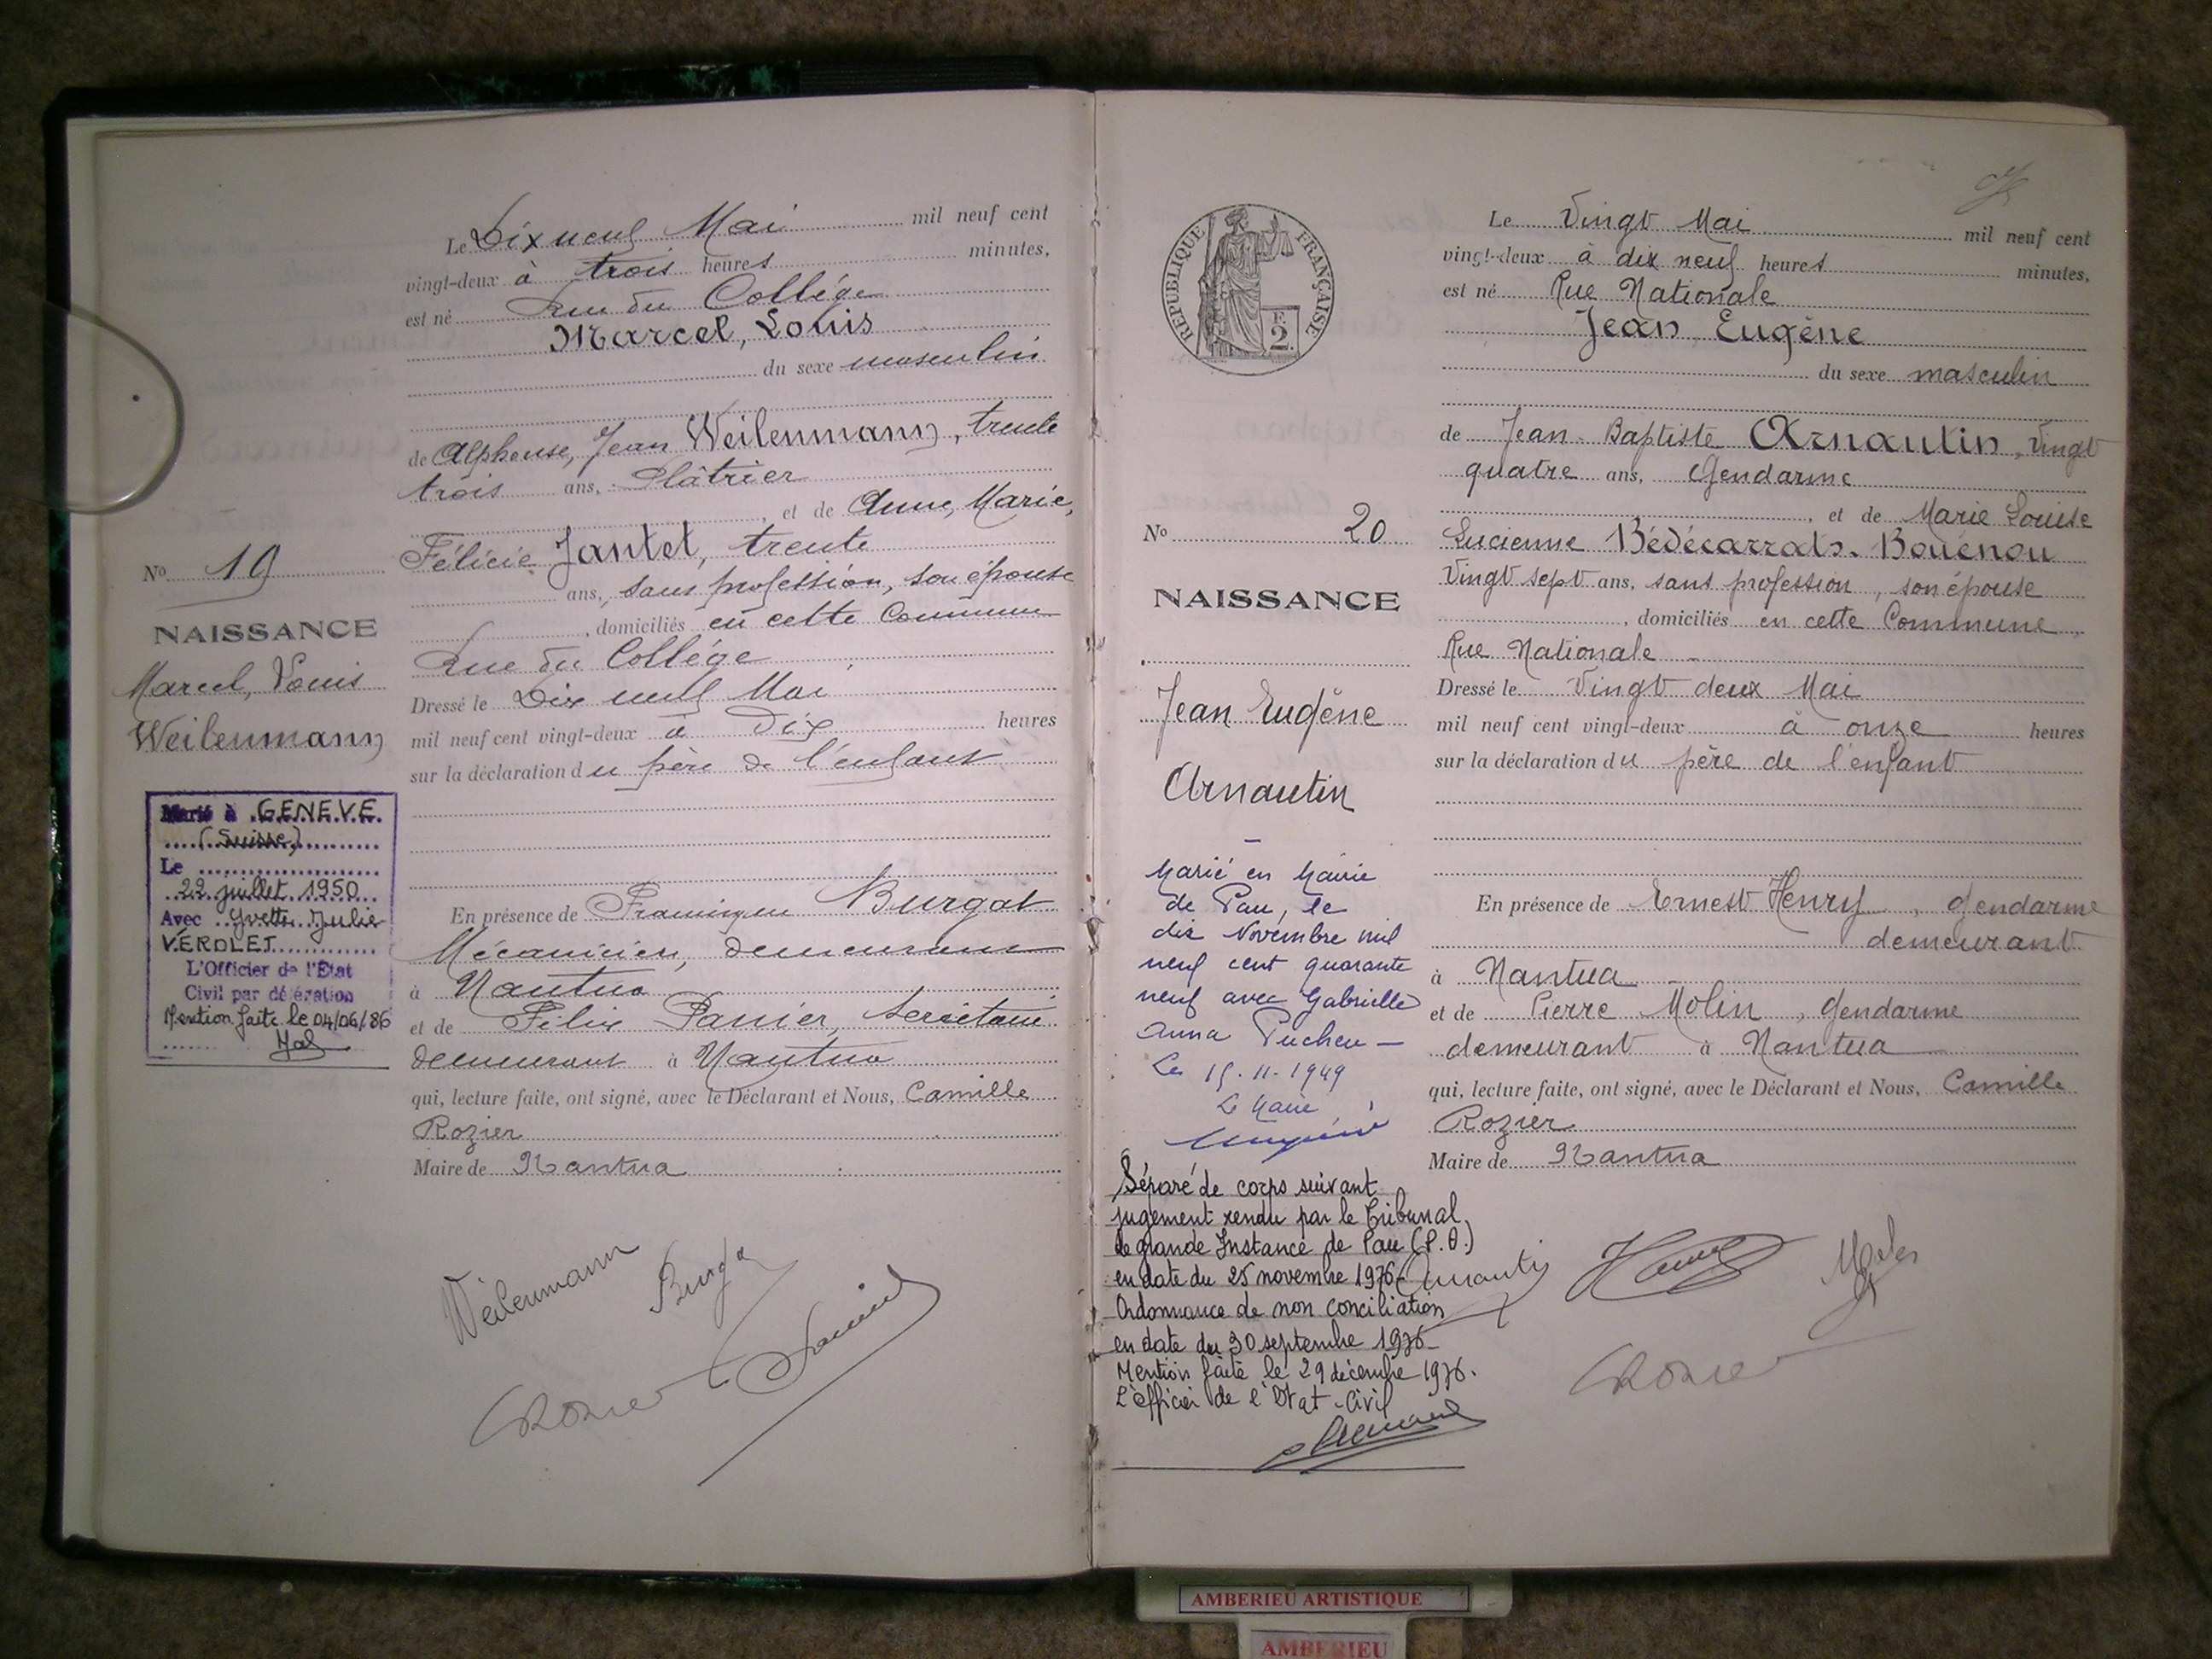 Le Dix neuf Mai mil neuf cent
vingt-deux à trois heures minutes,
est né Rue du Collége
Marcel, Louis
du sexe masculin
de Alphonse, Jean Weilenmann, trente
trois ans, Plâtrier
, et de Anne, Marie,
Félicie Jantet, trente
ans, sans profession, son épouse
, domiciliés en cette Commune
Rue du Collége
Dressé le Dix neuf Mai
mil neuf cent vingt-deux à Dix heures
sur la déclaration du père de l'enfant
En présence de Burgat
Mécanicien, demeurant
à Nantua
et de Félix Panier, Secrétaire
demeurant à Nantua
qui, lecture faite, ont signé, avec le Déclarant et Nous, Camille
Rozier
Maire de Nantua
Weilenmann
Burga
Rozier
No 19
NAISSANCE
Marcel, Louis
Weilenmann
Marié à GENEVE
(Suisse)
Le
22 juillet 1950
Avec Yvette Julie
VERDLET
L'Officier de l'Etat
Civil par délégation
Mention faite le 04/06/86
REPUBLIQUE FRANÇAISE
F.
2.
No 20
NAISSANCE
Jean Eugène
Arnautin
Marié en Mairie
de Pau, le
dix Novembre mil
neuf cent quarante
neuf avec Gabrielle
Anna Pucheu —
Le 15-11-1949
Le Maire
Séparé de corps suivant
jugement rendu par le Tribunal
de grande Instance de Pau (P.A.)
en date du 25 novembre 1976
Ordonnance de non conciliation
en date du 30 septembre 1976
Mention faite le 29 décembre 1976.
L'officier de l'Etat-Civil
Le Vingt Mai mil neuf cent
vingt-deux à dix neuf heures minutes,
est né Rue Nationale
Jean, Eugène
du sexe masculin
de Jean-Baptiste Arnautin, Vingt
quatre ans, Gendarme
, et de Marie Louise
Lucienne Bédécarrats-Bouénou
Vingt sept ans, sans profession, son épouse
, domiciliés en cette Commune
Rue Nationale
Dressé le Vingt deux Mai
mil neuf cent vingt-deux à onze heures
sur la déclaration du père de l'enfant
En présence de Ernest Henry, gendarme
demeurant
à Nantua
et de Pierre Molin, gendarme
demeurant à Nantua
qui, lecture faite, ont signé, avec le Déclarant et Nous, Camille
Rozier
Maire de Nantua
Arnautin
Rozier
AMBERIEU ARTISTIQUE
AMBERIEU